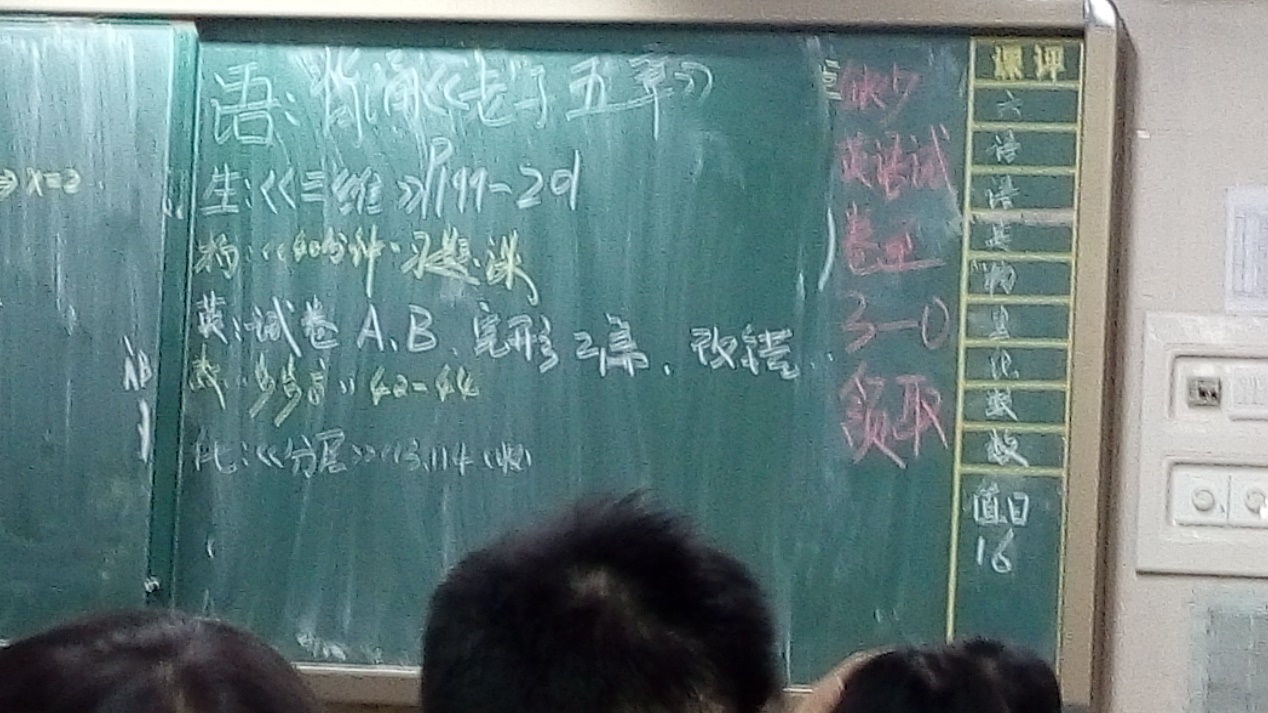 ⇒x=2
语:背诵《老子五章》
生:《三维》P199-201
物:《40分钟》习题课
英:试卷A、B、完形2篇、改错
数:《步步高》42-44
化:《分层》113,114(收)
缺少
英语试
卷
领取
课评
六
语
语
英
物
化
数
值日
16